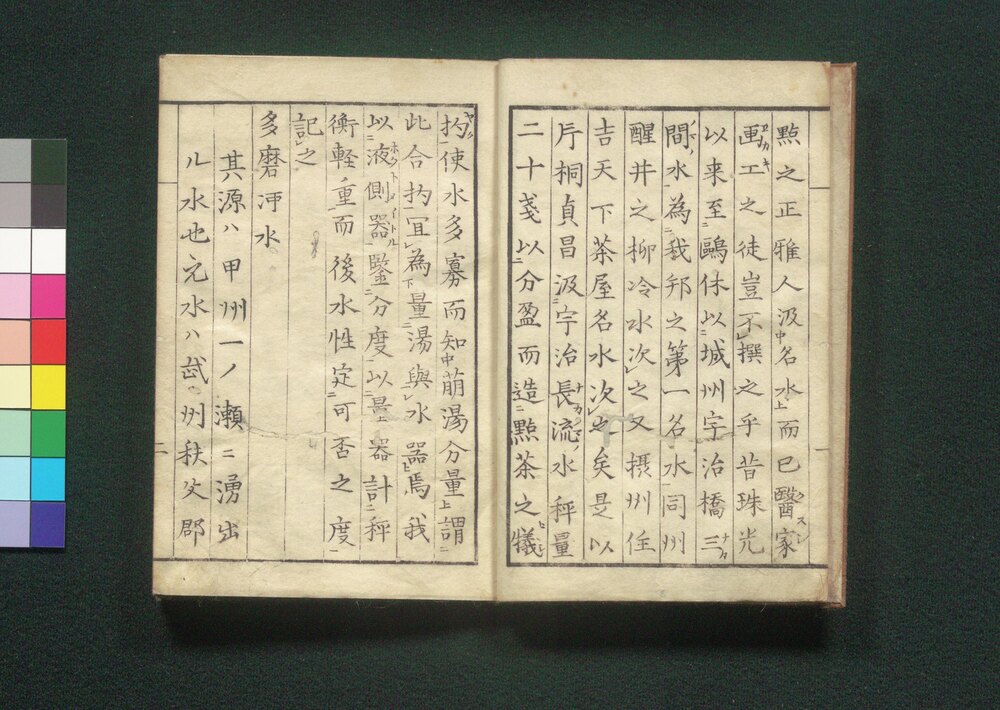 點之正雅人汲名水而已醫家
画工之徒豈不撰之乎昔珠光
以来至鷗休以城州宇治橋三
間水為我邦之第一名水同州
醒井之柳冷水次之又摂州住
吉天下茶屋名水次之矣是以
片桐貞昌汲宇治長流水秤量
二十戔以分盈而造點茶之犠
杓使水多寡而知萠湯分量謂
此合杓冝為量湯與水器焉我
以液側器鑒分度以量器計秤
衡軽重而後水性定可否之度
記之
多磨浄水
其源ハ甲州一ノ瀬ニ湧出
ル水也元水ハ武州秩父郡
二